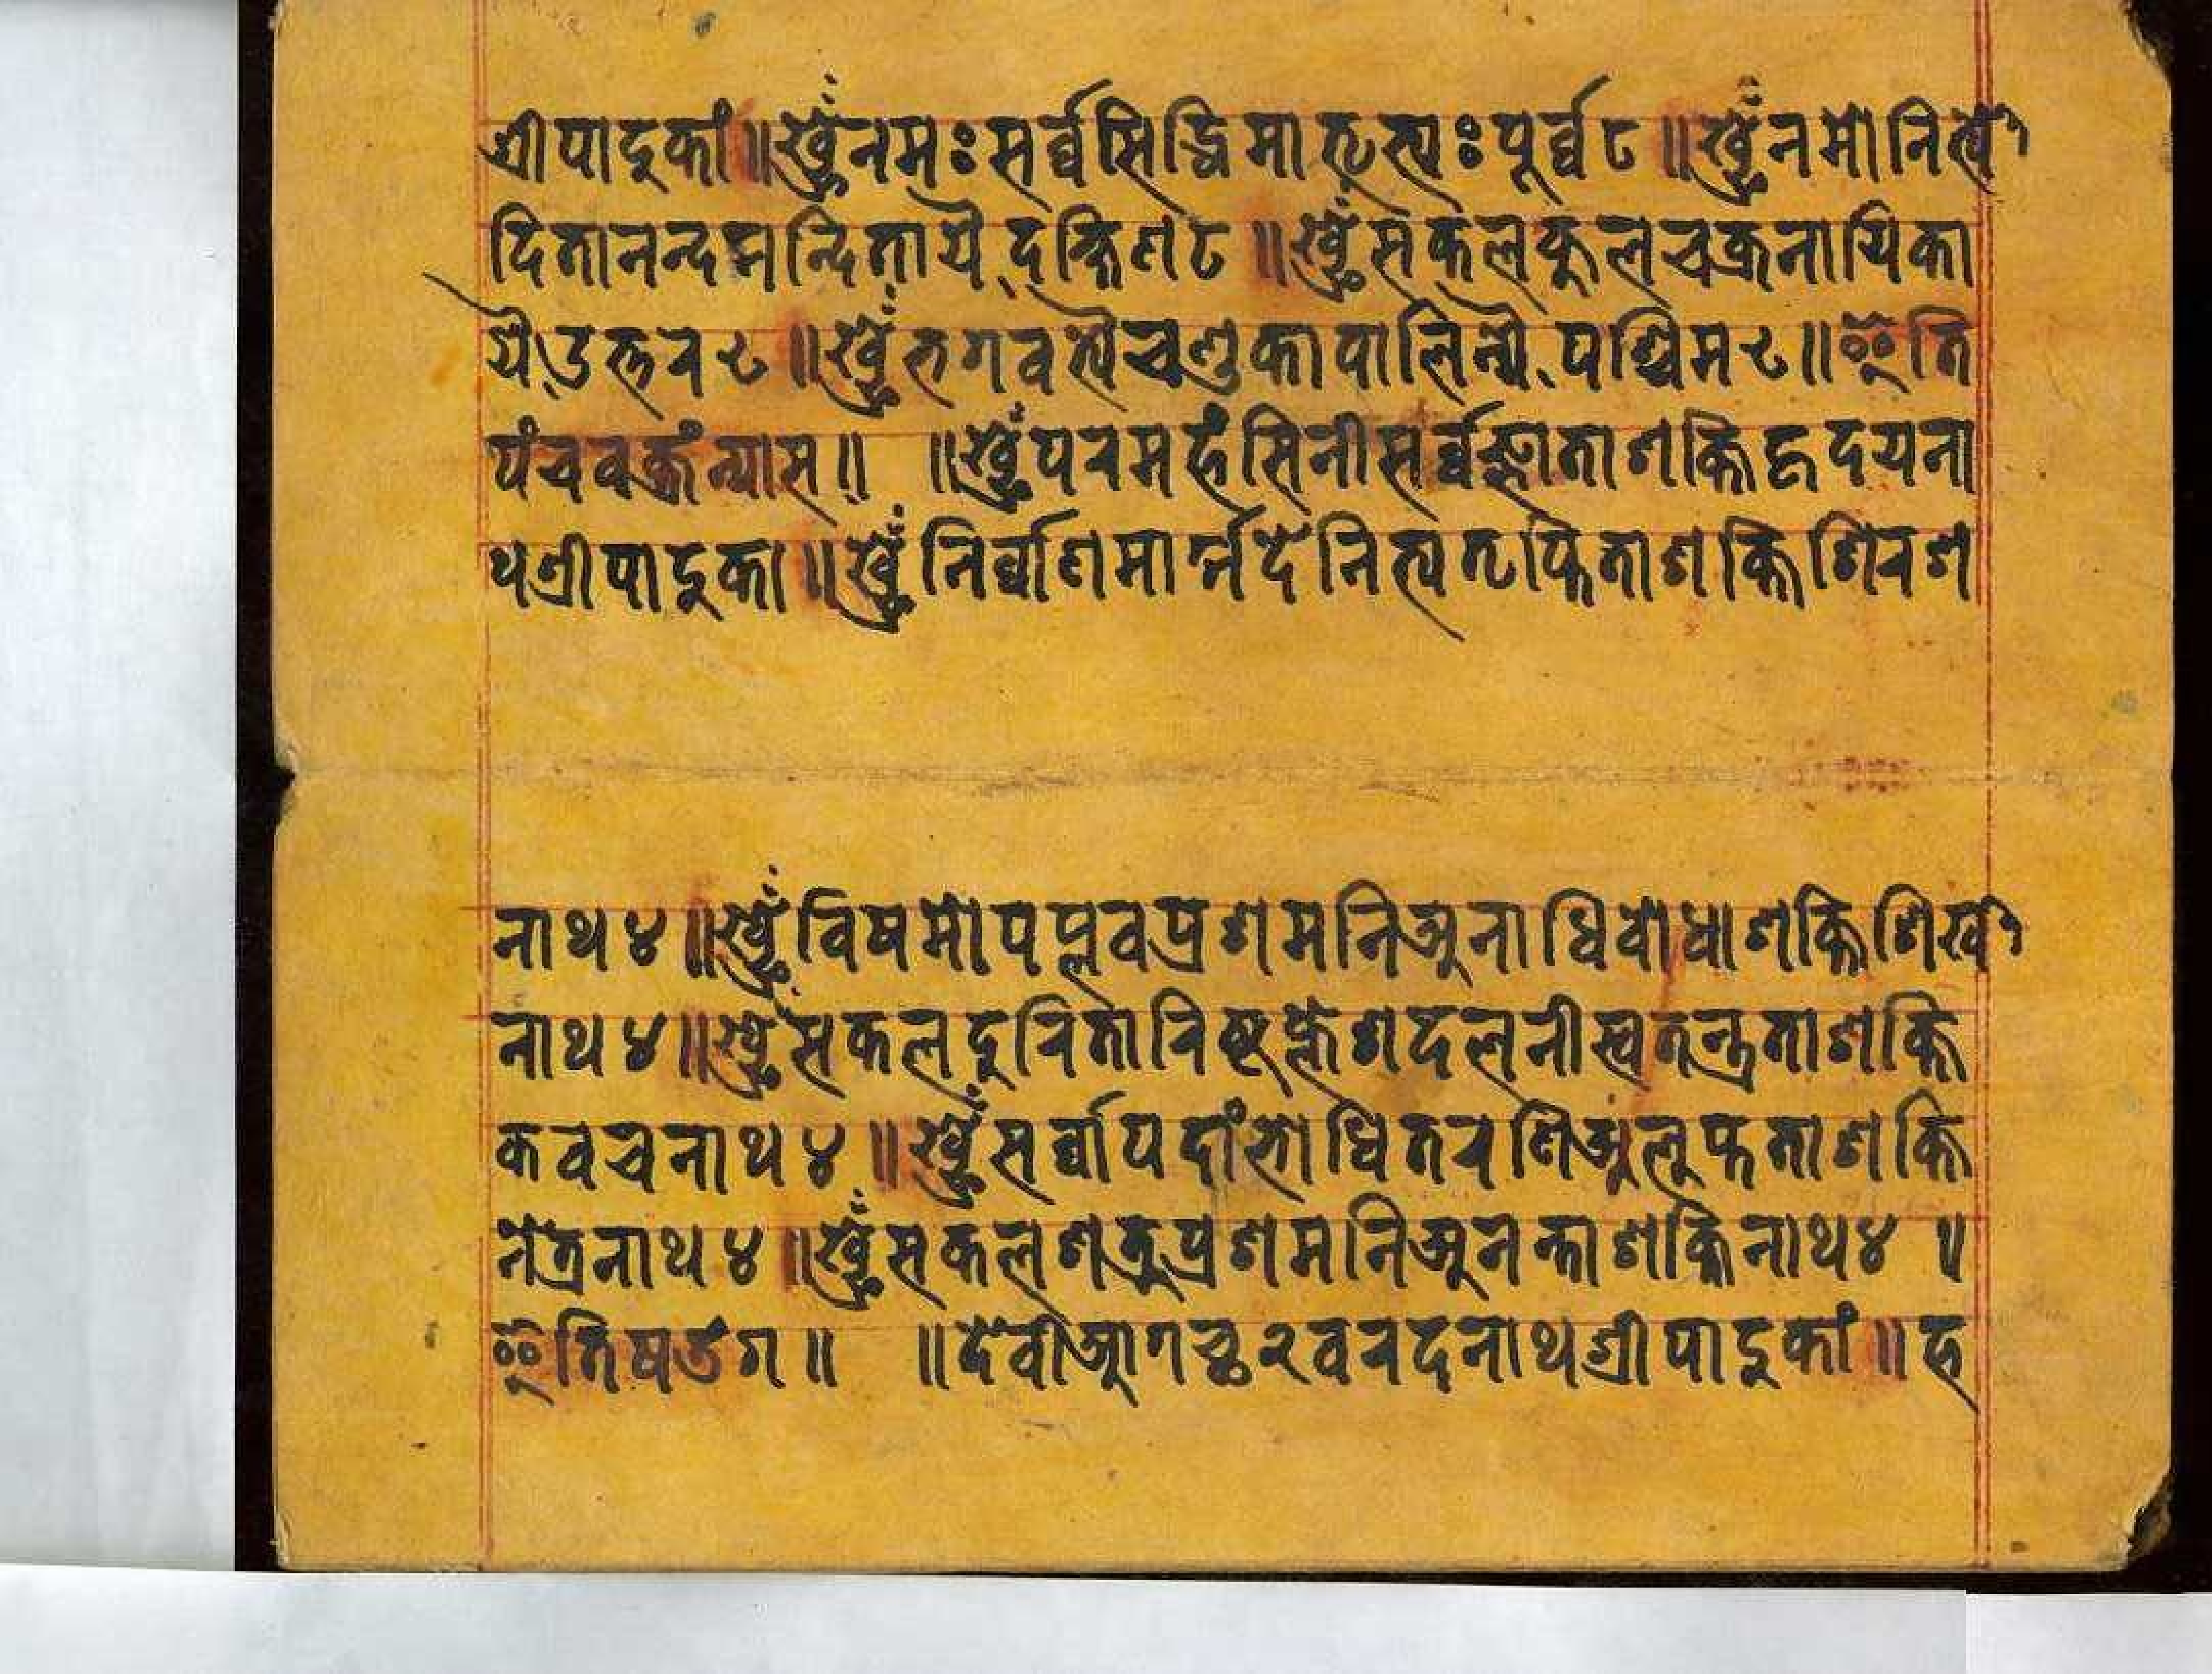 श्रीपादुकां॥ख्फ्रेंनमःसर्व्वसिद्धिमातृभ्यःपूर्व्व८॥ख्फ्रेंनमोनित्यो
दितानन्दनन्दितायैदक्षिण८॥ख्फ्रेंसकलकुलचक्रनायिका
यैउत्तर८॥ख्फ्रेंभगवत्यैचण्डकापालिन्यैपश्चिम८॥इति
पंचवक्त्रंन्यास॥ ॥ख्फ्रेंपरमहंसिनीसर्व्वज्ञाताशक्तिहृदयना
थश्रीपादुका॥ख्फ्रेंनिर्व्वाणमार्ग्गदेनित्यतृप्तिताशक्तिशिरश
नाथ४॥ख्फ्रेंविषमोपप्लवप्रशमनिअनाधिबोधाशक्तिशिखा
नाथ४॥ख्फ्रेंसकलदुरितारिष्टक्लेशदलनीस्वतन्त्रताशक्ति
कवचनाथ४॥ख्फ्रेंसर्व्वापदांभोधितरणिअलुप्तताशक्ति
नेत्रनाथ४॥ख्फ्रेंसकलशत्रुप्रशमनिअनन्ताशक्तिनाथ४॥
इतिषडंग॥ ॥देवीआगच्छ२वरदनाथश्रीपादुकां॥ह